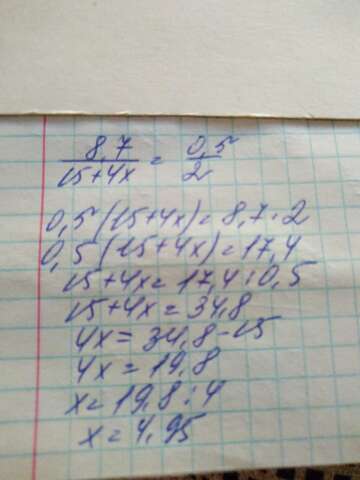 8,7/15+4x = 0,5/2
0,5(15+4x)=8,7·2
0,5(15+4x)=17,4
15+4x=17,4:0,5
15+4x=34,8
4x=34,8-15
4x=19,8
x=19,8:4
x=4,95